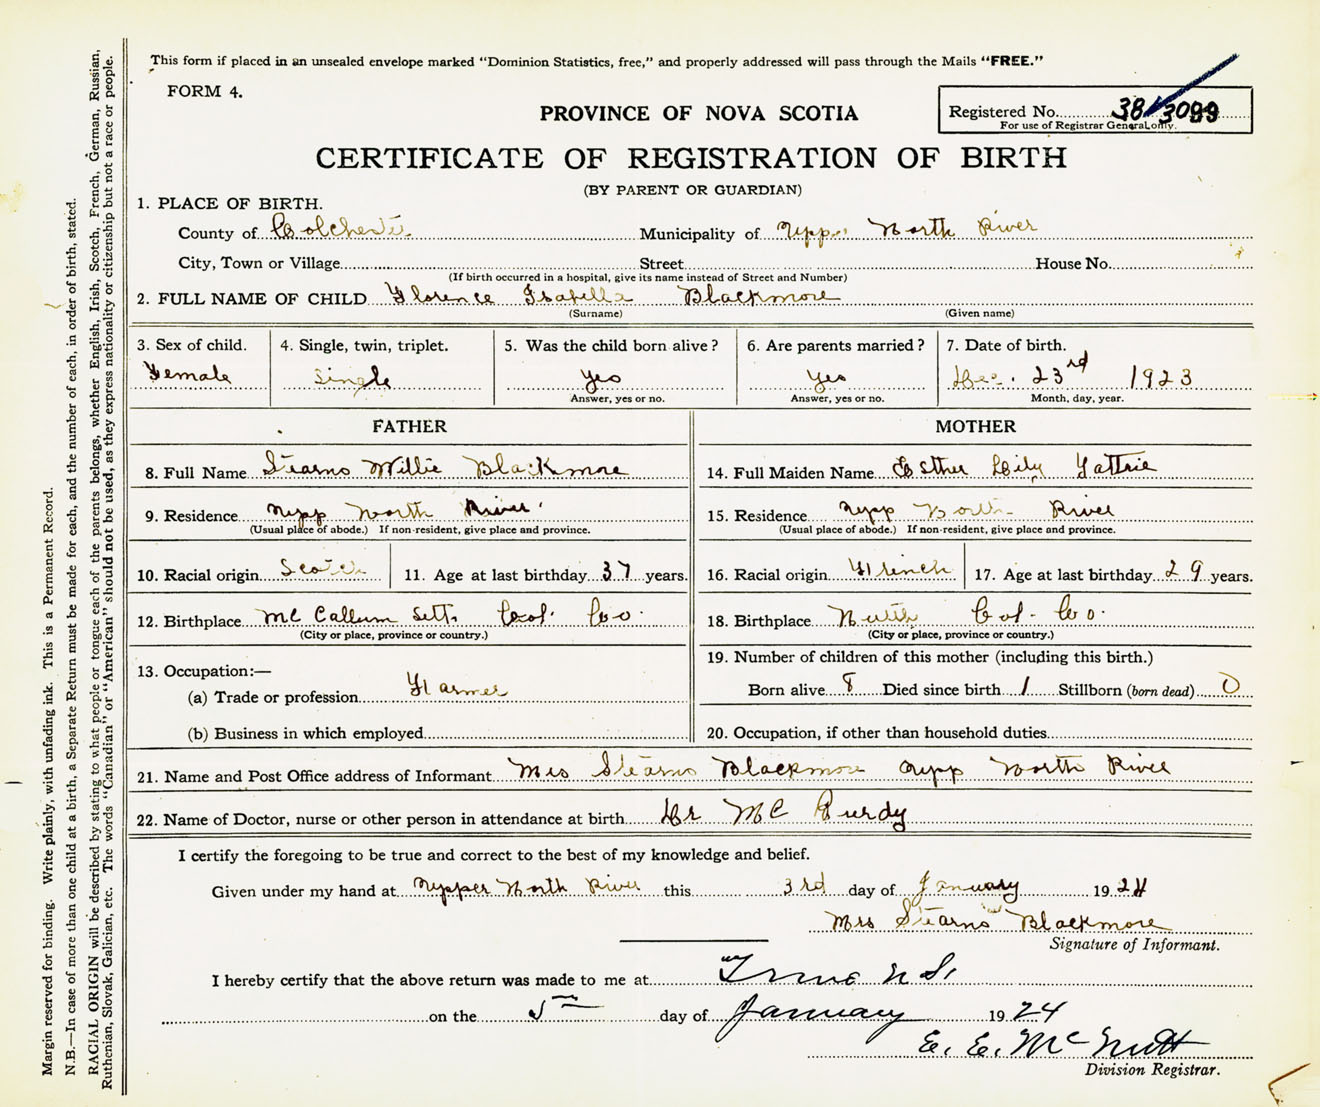 This form if placed in an unsealed envelope marked "Dominion Statistics, free," and properly addressed will pass through the Mails "FREE."
FORM 4.
PROVINCE OF NOVA SCOTIA
Registered No. 38 3099
For use of Registrar General only.
CERTIFICATE OF REGISTRATION OF BIRTH
(BY PARENT OR GUARDIAN)
1. PLACE OF BIRTH.
County of Colchester Municipality of Upper North River
City, Town or Village Street House No.
(If birth occurred in a hospital, give its name instead of Street and Number)
2. FULL NAME OF CHILD Florence Isabella Blackmore
(Surname) (Given name)
3. Sex of child. 4. Single, twin, triplet. 5. Was the child born alive? 6. Are parents married? 7. Date of birth.
Female Single Yes Yes Dec. 23rd 1923
Answer, yes or no. Answer, yes or no. Month, day, year.
FATHER MOTHER
8. Full Name Stearns Willie Blackmore 14. Full Maiden Name Esther Lily Gattrie
9. Residence Upp North River 15. Residence Upp North River
(Usual place of abode.) If non-resident, give place and province. (Usual place of abode.) If non-resident, give place and province.
10. Racial origin Scotch 11. Age at last birthday 37 years. 16. Racial origin French 17. Age at last birthday 29 years.
12. Birthplace Mc Callum Sett. Col. Co. 18. Birthplace Col. Co.
(City or place, province or country.) (City or place, province or country.)
19. Number of children of this mother (including this birth.)
13. Occupation:—
(a) Trade or profession Farmer Born alive 8 Died since birth 1 Stillborn (born dead) 0
(b) Business in which employed 20. Occupation, if other than household duties
21. Name and Post Office address of Informant Mrs Stearns Blackmore Upp North River
22. Name of Doctor, nurse or other person in attendance at birth Dr Mc Purdy
I certify the foregoing to be true and correct to the best of my knowledge and belief.
Given under my hand at Upper North River this 3rd day of January 1924
Mrs Stearns Blackmore
Signature of Informant.
I hereby certify that the above return was made to me at Truro N.S.
on the 5th day of January 1924
E. E. McNutt
Division Registrar.
Margin reserved for binding. Write plainly, with unfading ink. This is a Permanent Record.
N.B.—In case of more than one child at a birth, a Separate Return must be made for each, and the number of each, in order of birth, stated.
RACIAL ORIGIN will be described by stating to what people or tongue each of the parents belongs, whether English, Irish, Scotch, French, German, Russian,
Ruthenian, Slovak, Galician, etc. The words "Canadian" or "American" should not be used, as they express nationality or citizenship but not a race or people.